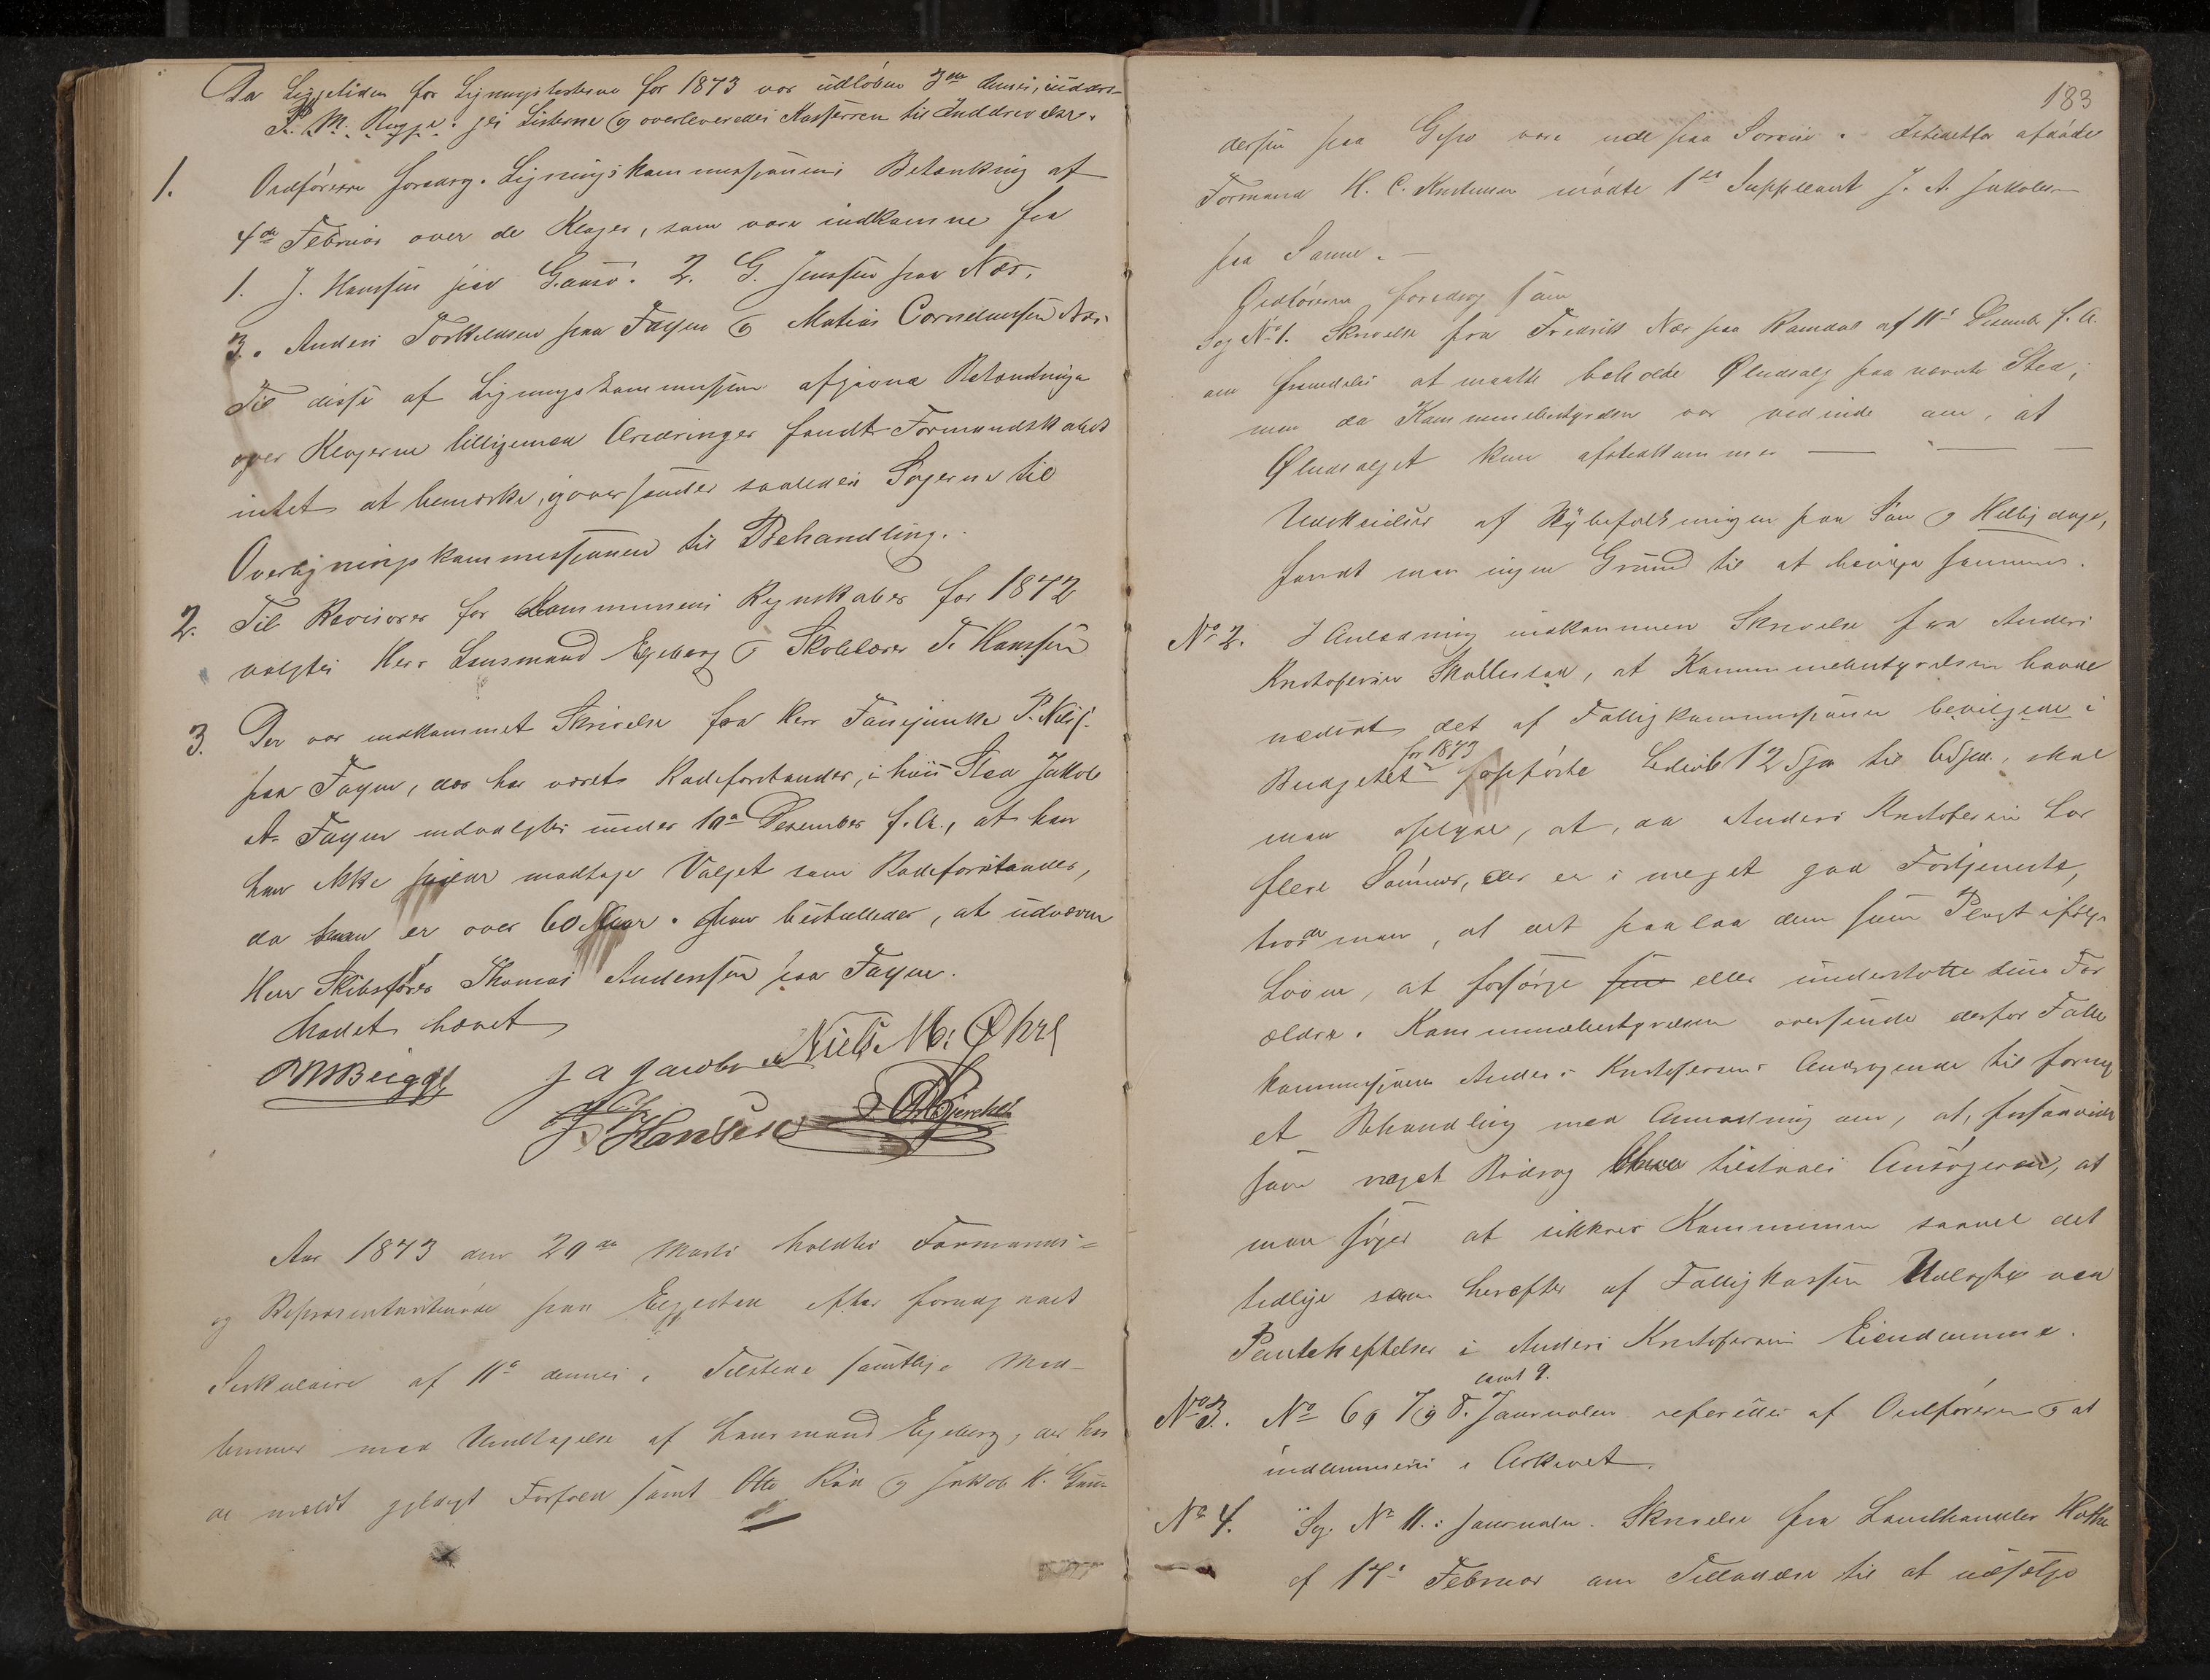 Da Liggetiden for Ligningslisterne for 1873 var udløben 3die dennes, uddere-
P. M. Rugge. jes Listerne og overleveredes Kasserren til Inddrivelse.
1. Ordføreren foredrog. Ligningskommissionens Betænkning af
4de Februar over de Klager, som vare indkomne fra
1. J. Hanssen paa Gamø. 2. G. Jenssen paa Nær.
3. Anders Torkildsen paa Føyen og Matias Corneliussen Nær.
Til disse af Ligningskommissionen afgivne Betænkninger
over Klagerne tilligemed Erklæringer fandt Formandskabet
intet at bemærke, og oversender saaledes Sagerne til
Overligningskommissionen til Behandling.
2. Til Revisorer for Kommunens Regnskaber for 1872
valgtes Herr Lensmand Egeberg og Skolelærer T. Hanssen
3. Der var indkommet Skrivelse fra Herr P. Nils.
paa Føyen, der har været Rodeforstander, i hvis Sted Jakob
A. Føyen udvalgtes under 19de Desember f. A., at han
kan ikke modtage Valget som Rodeforstander,
da han er over 60 Aar. Man besluttedes, at udnævne
Herr Skibsfører Thomas Anderssen paa Føyen.
Mødet hævet
OMBugge J A Jacobsen Niels M. Øhre
J. Hansen O. Bjerche
Aar 1873 den 29de Marts holdtes Formands=
og Repræsentantmøde paa Eegestad efter foregaaet
Sirkulaire af 11te dennes. Tilstede samtlige Med-
lemmer med Undtagelse af Lensmand Egeberg, der hav
de meldt gyldigt Forfald samt Otto Rød og Jakob K.
183
dersen paa Gipø vare ude paa Søreise. Istedetfor afdøde
Formand H. C. Kristensen mødte 1ste Suppleant J. A. Jakobsen
paa Sanne.
Ordføreren foredrog som
Sag No 1. Skrivelse fra Fredrik Nær paa Ramdal af 11te Desember f. A.
om fremdeles at maatte beholde Øludsalg paa nævnte Sted;
men da Kommunebestyrelsen var vidende om, at
Øludsalget kun afstedkommer — — —
Udskeielser af Nybefolkningen paa Søn og Hellig dage,
fandt man ingen Grund til at bevilge samme.
No 2. I Anledning indkommen Skrivelse fra Anders
Kristofersen Skallestad, at Kommunebestyrelsen havde
nedsat det af Fattigkommissionen bevilgede i
Budgetet for 1873 opførte Beløb 12 Spd til 6 Spd., skal
man oplyse, at, da Anders Kristofersen har
flere Sønner, der er i meget god Fortjeneste,
trode man, at det paalaa dem som Pligt ifølge
Loven, at forsørge sine eller understøtte sine For
ældre. Kommunebestyrelsen oversende derfor Fattig
kommissionen Anders Kristofersens Andragende til fornyet
et Behandling med Anmodning om, at, forsaavidt
som noget Bidrag bliver tilstaaes Ansøgeren, at
man søger at sikkrer Kommunen saavel det
tidlige som herefter af Fattigkassen Udlagte ved
Pantehæftelser i Anders Kristofersens Eiendomme.
No 3. No 6 og 7 og 8. samt 9. Journalen refereres af Ordføreren og at
indlemmes i Arkivet.
No 4. Sag No 11. i Journalen. Skrivelse fra Landhandler
af 17de Februar om Tilladelse til at udsælge